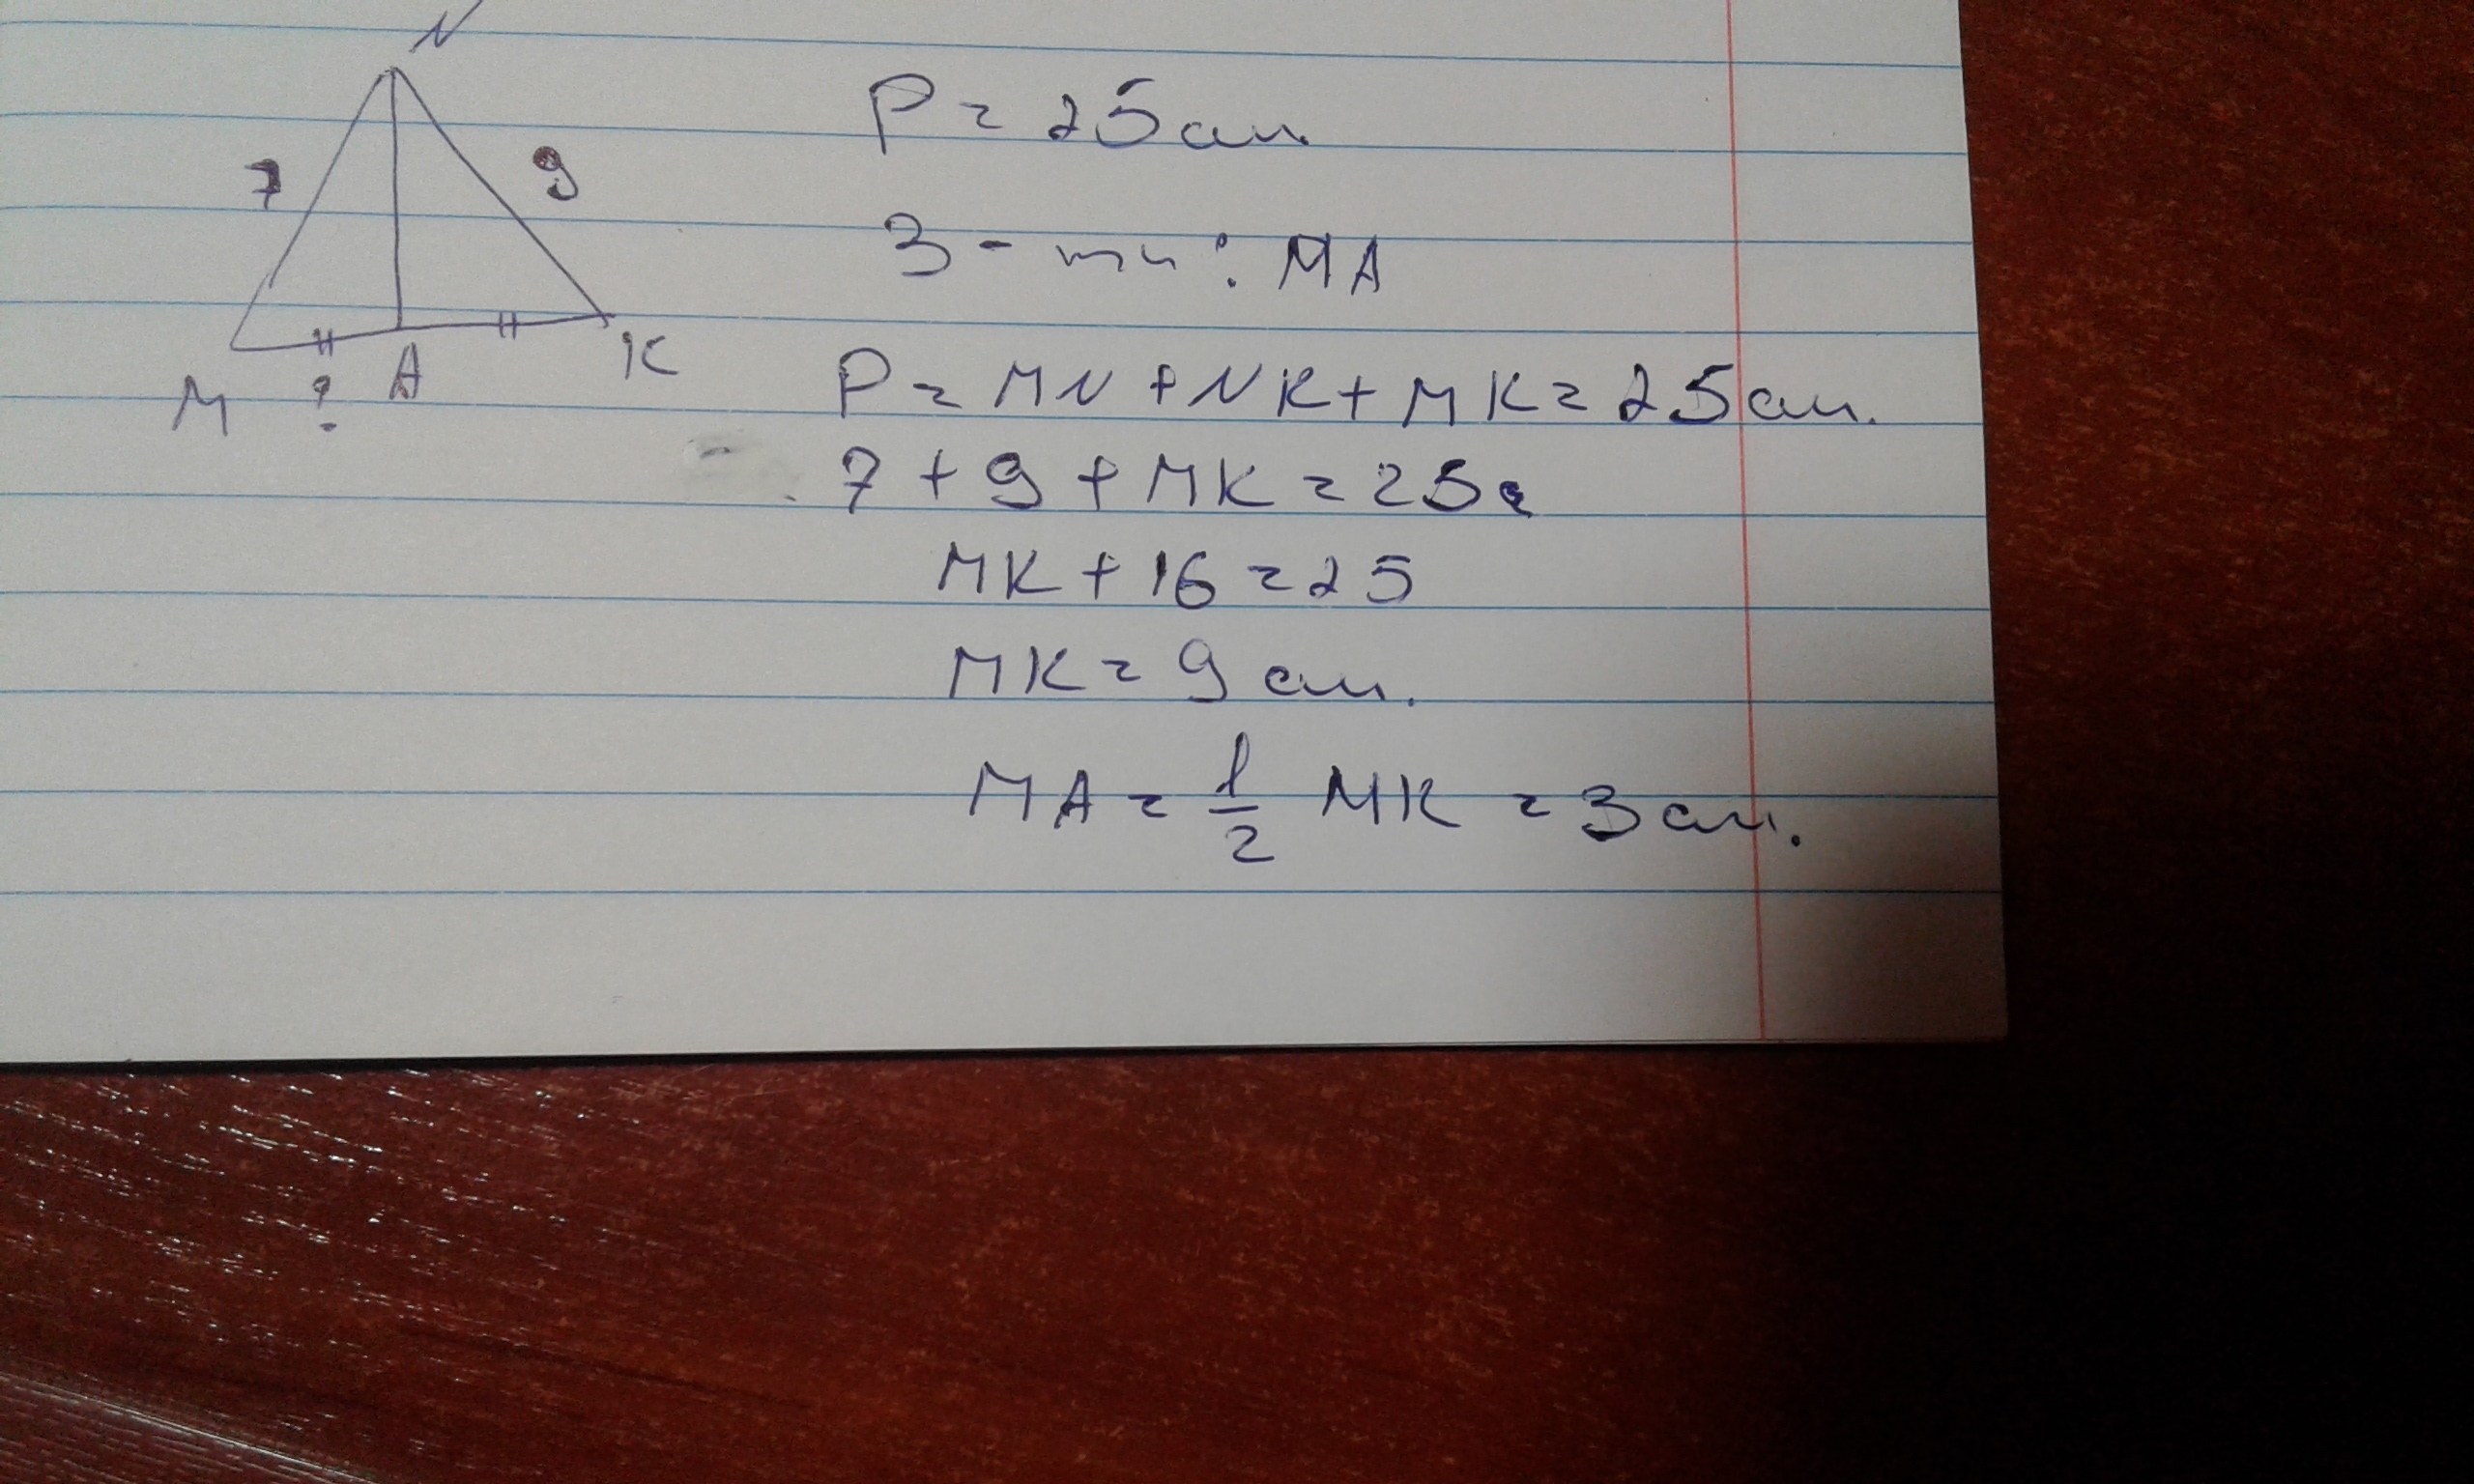 N
7
9
M ? A K
P = 25 см.
З-ти: MA
P = MN + NK + MK = 25 см.
7 + 9 + MK = 25
MK + 16 = 25
MK = 9 см.
MA = 1/2 MK = 3 см.